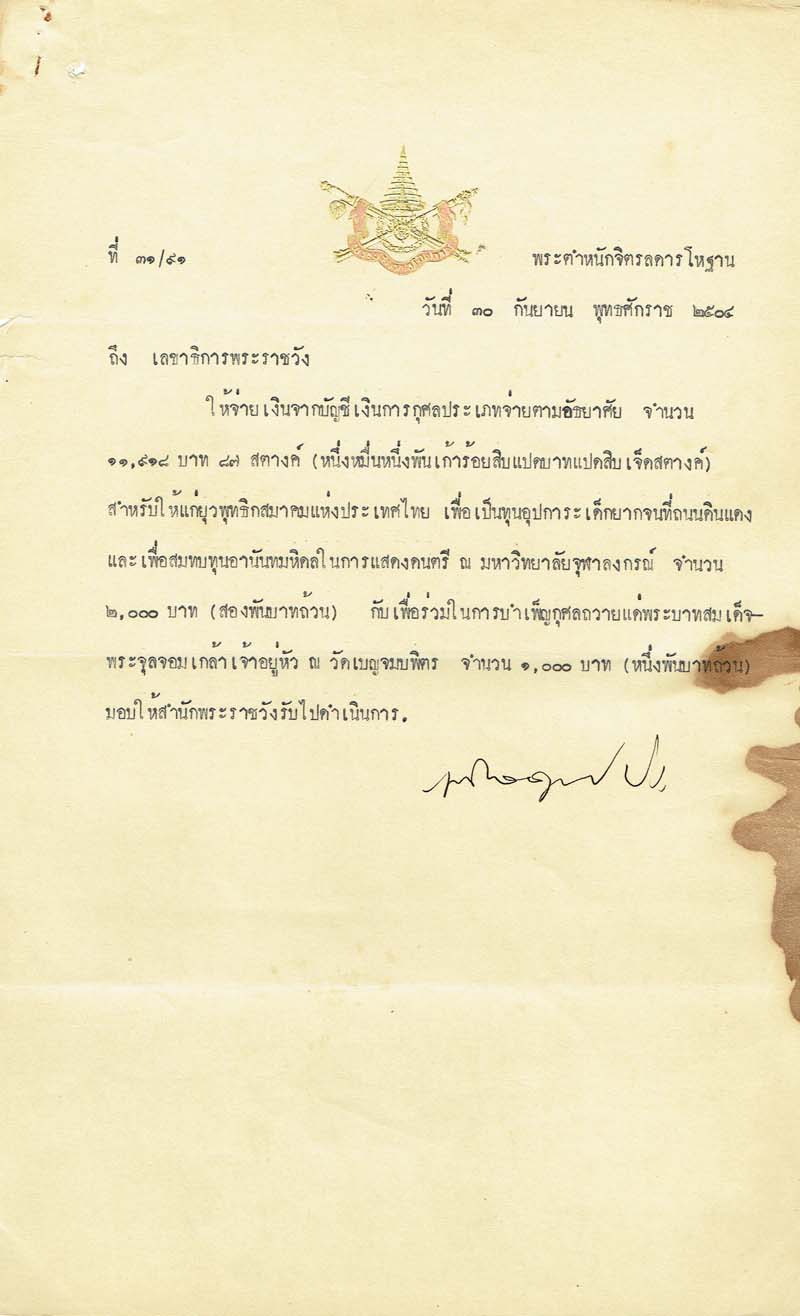 ที่ ๓๑/๙๑
พระตำหนักจิตรลดารโหฐาน
วันที่ ๓๐ กันยายน พุทธศักราช ๒๕๐๔
ถึง เลขาธิการพระราชวัง
ให้จ่ายเงินจากบัญชีเงินการกุศลประเภทจ่ายตามอัธยาศัย จำนวน
๑๑,๙๑๘ บาท ๘๗ สตางค์ (หนึ่งหมื่นหนึ่งพันเก้าร้อยสิบแปดบาทแปดสิบเจ็ดสตางค์)
สำหรับให้แก่ยุวพุทธิกสมาคมแห่งประเทศไทย เพื่อเป็นทุนอุปการะเด็กยากจนที่ถนนดินแดง
และเพื่อสมทบทุนอานันทมหิดลในการแสดงดนตรี ณ มหาวิทยาลัยจุฬาลงกรณ์ จำนวน
๒,๐๐๐ บาท (สองพันบาทถ้วน) กับเพื่อร่วมในการบำเพ็ญกุศลถวายแด่พระบาทสมเด็จ-
พระจุลจอมเกล้าเจ้าอยู่หัว ณ วัดเบญจมบพิตร จำนวน ๑,๐๐๐ บาท (หนึ่งพันบาทถ้วน)
มอบให้สำนักพระราชวังรับไปดำเนินการ.